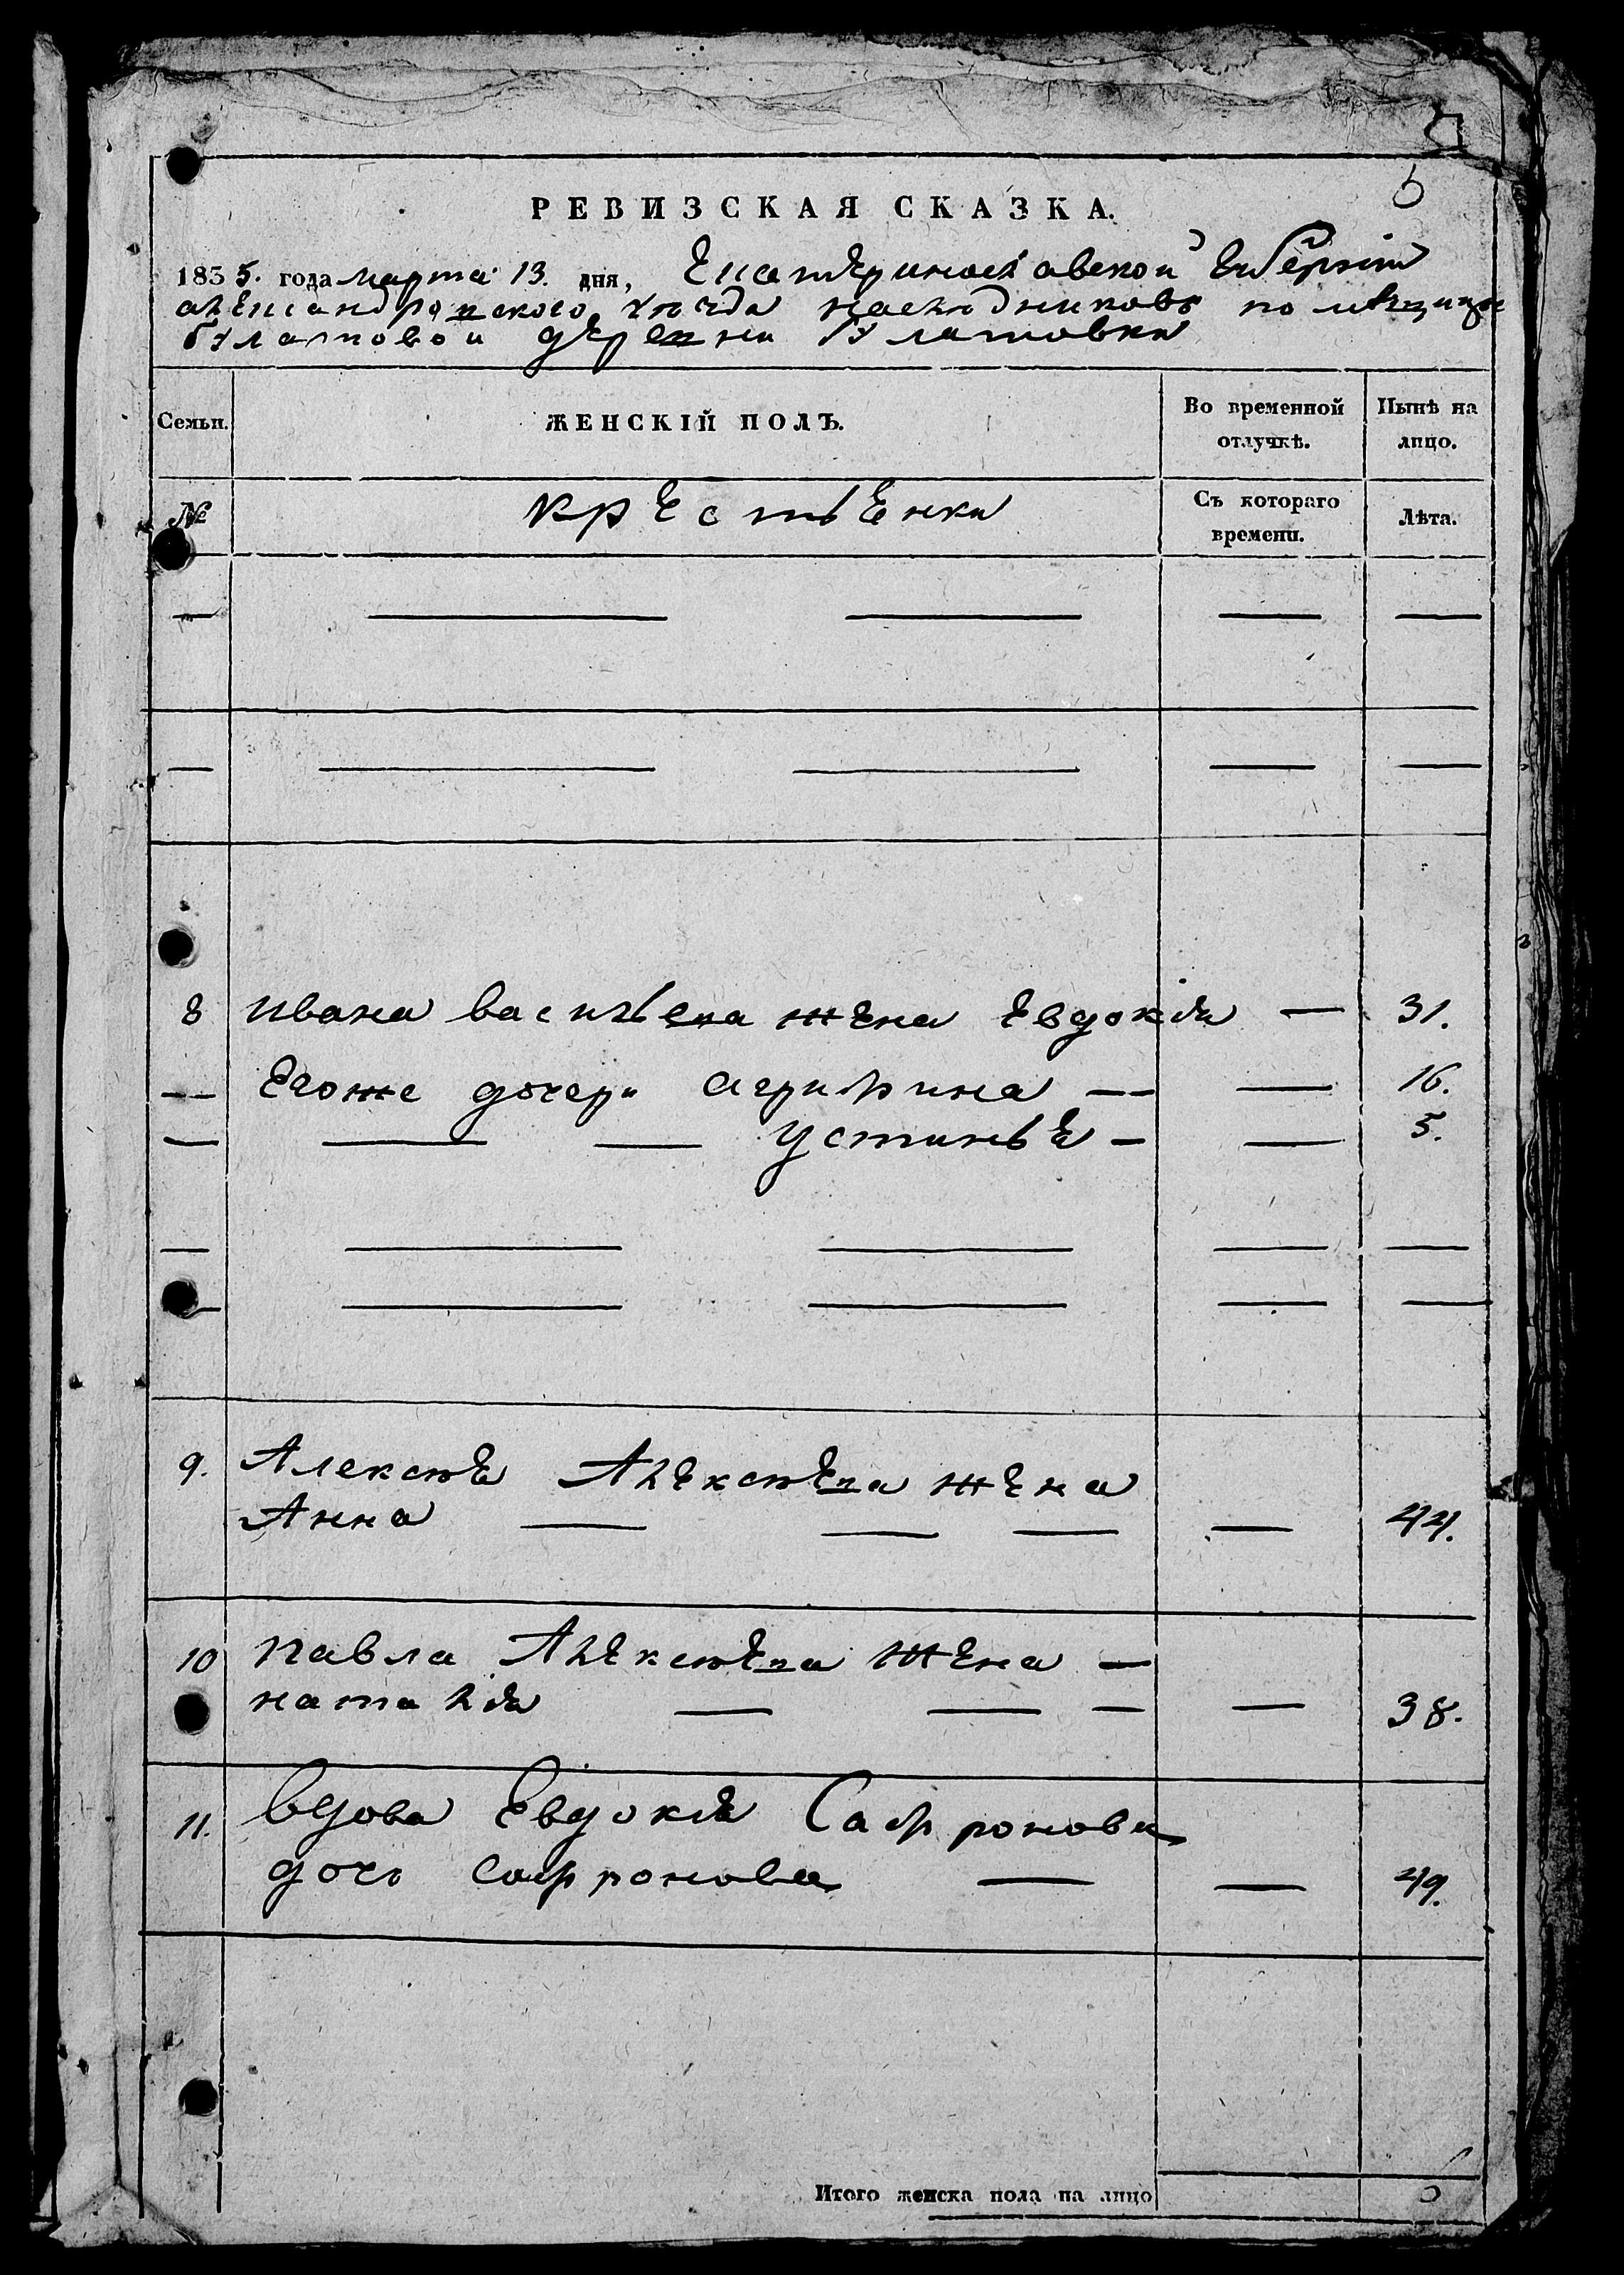 5
РЕВИЗСКАЯ СКАЗКА.
1835. года марта 13. дня, Екатеринославской Губерніи
александровского уѣзда наслюдниковъ помѣщицы
булатовой деревни Булатовки
Семьи. ЖЕНСКІЙ ПОЛЪ. Во временной отлучкѣ. Нынѣ на лицо.
№ крестьЕнки Съ котораго времени. Лѣта.
— — — — —
— — — — —
8 ивана васильева жена Евдокия — 31.
— Егоже дочери агрифина — — 16.
— — — Устинье — — 5.
— — — — —
— — — — —
9. Алексѣя Алексѣева жена
Анна — — — — 44.
10 павла Алексѣева жена —
наталия — — — — 38.
11. вдова Евдокия Сафронова
дочь сафронова — — 49.
Итого женска пола на лицо 6